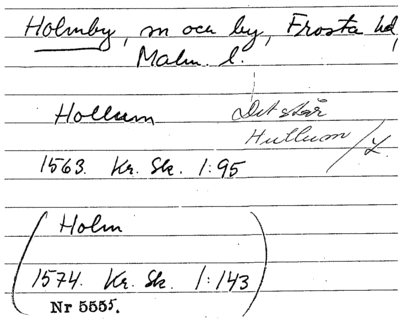 Holmby, sn och by, Frosta hd,
Malm. l.
Hollum
Det står
Hullum /L.
1563. Kr. Sk. 1:95
(Holm
1574. Kr. Sk. 1:143)
Nr 5555.